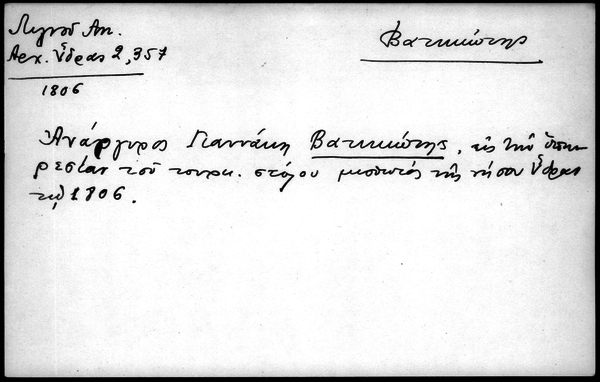 Λιγνοῦ Αν.
Αρχ. Ὕδρας 2,357
1806
Βατικιώτης
Ἀνάργυρος Γιαννάκη Βατικιώτης, εἰς τὴν ὑπη-
ρεσίαν τοῦ τουρκ. στόλου μισθωτός τῆς νήσου Ὕδρας
τῷ 1806.